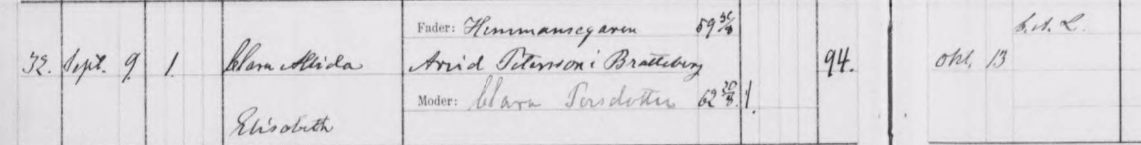 Fader: Hemmansegaren 59 30/8
32. Sept. 9. 1. Clara Alida Arvid Petersson i Bratteberg 94. okt. 13
Moder: Clara Persdotter 62 30/8 1.
Elisabeth